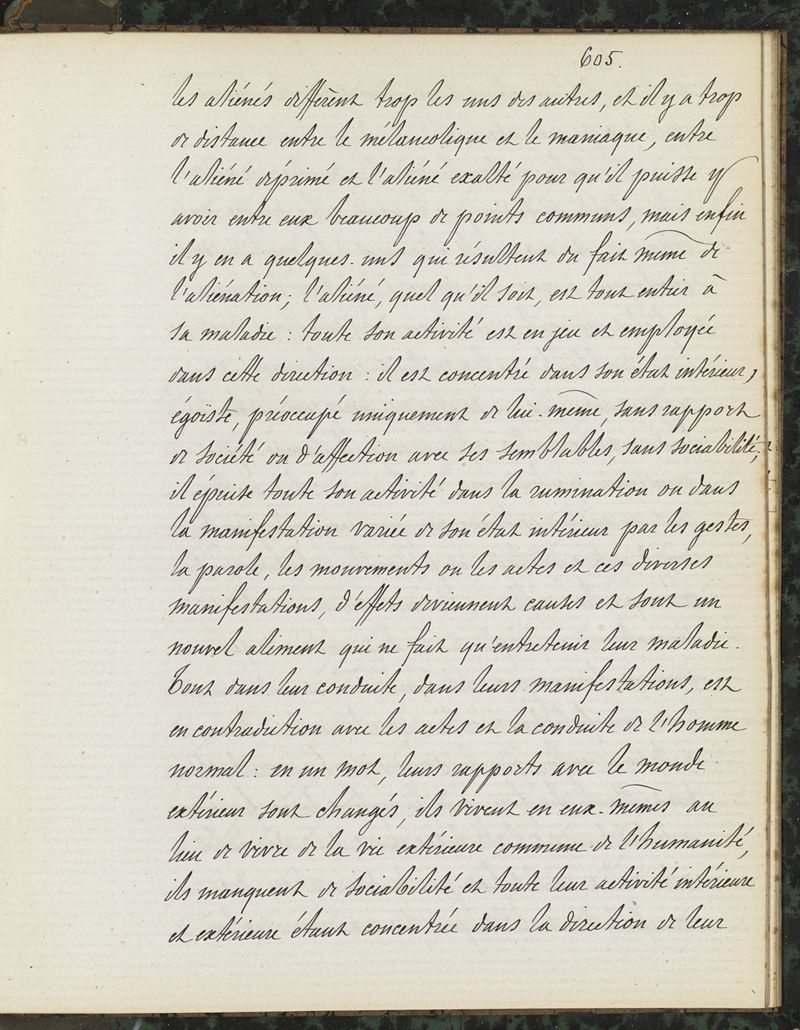 605.
les aliénés diffèrent trop les uns des autres, et il y a trop
de distance entre le mélancolique et le maniaque, entre
l'aliéné déprimé et l'aliéné exalté pour qu'il puisse y
avoir entre eux beaucoup de points communs, mais enfin
il y en a quelques-uns qui résultent du fait même de
l'aliénation; l'aliéné, quel qu'il soit, est tout entier à
sa maladie : toute son activité est en jeu et employée
dans cette direction : il est concentré dans son état intérieur,
égoïste, préoccupé uniquement de lui-même, sans rapport
de société ou d'affection avec ses semblables, sans sociabilité;
il épuise toute son activité dans la rumination ou dans
la manifestation variée de son état intérieur par les gestes,
la parole, les mouvements ou les actes et ces diverses
manifestations, d'effets deviennent causes et sont un
nouvel aliment qui ne fait qu'entretenir leur maladie.
Tout dans leur conduite, dans leurs manifestations, est
en contradiction avec les actes et la conduite de l'homme
normal : en un mot, leurs rapports avec le monde
extérieur sont changés, ils vivent en eux-mêmes au
lieu de vivre de la vie extérieure commune de l'humanité,
ils manquent de sociabilité et toute leur activité intérieure
et extérieure étant concentrée dans la direction de leur